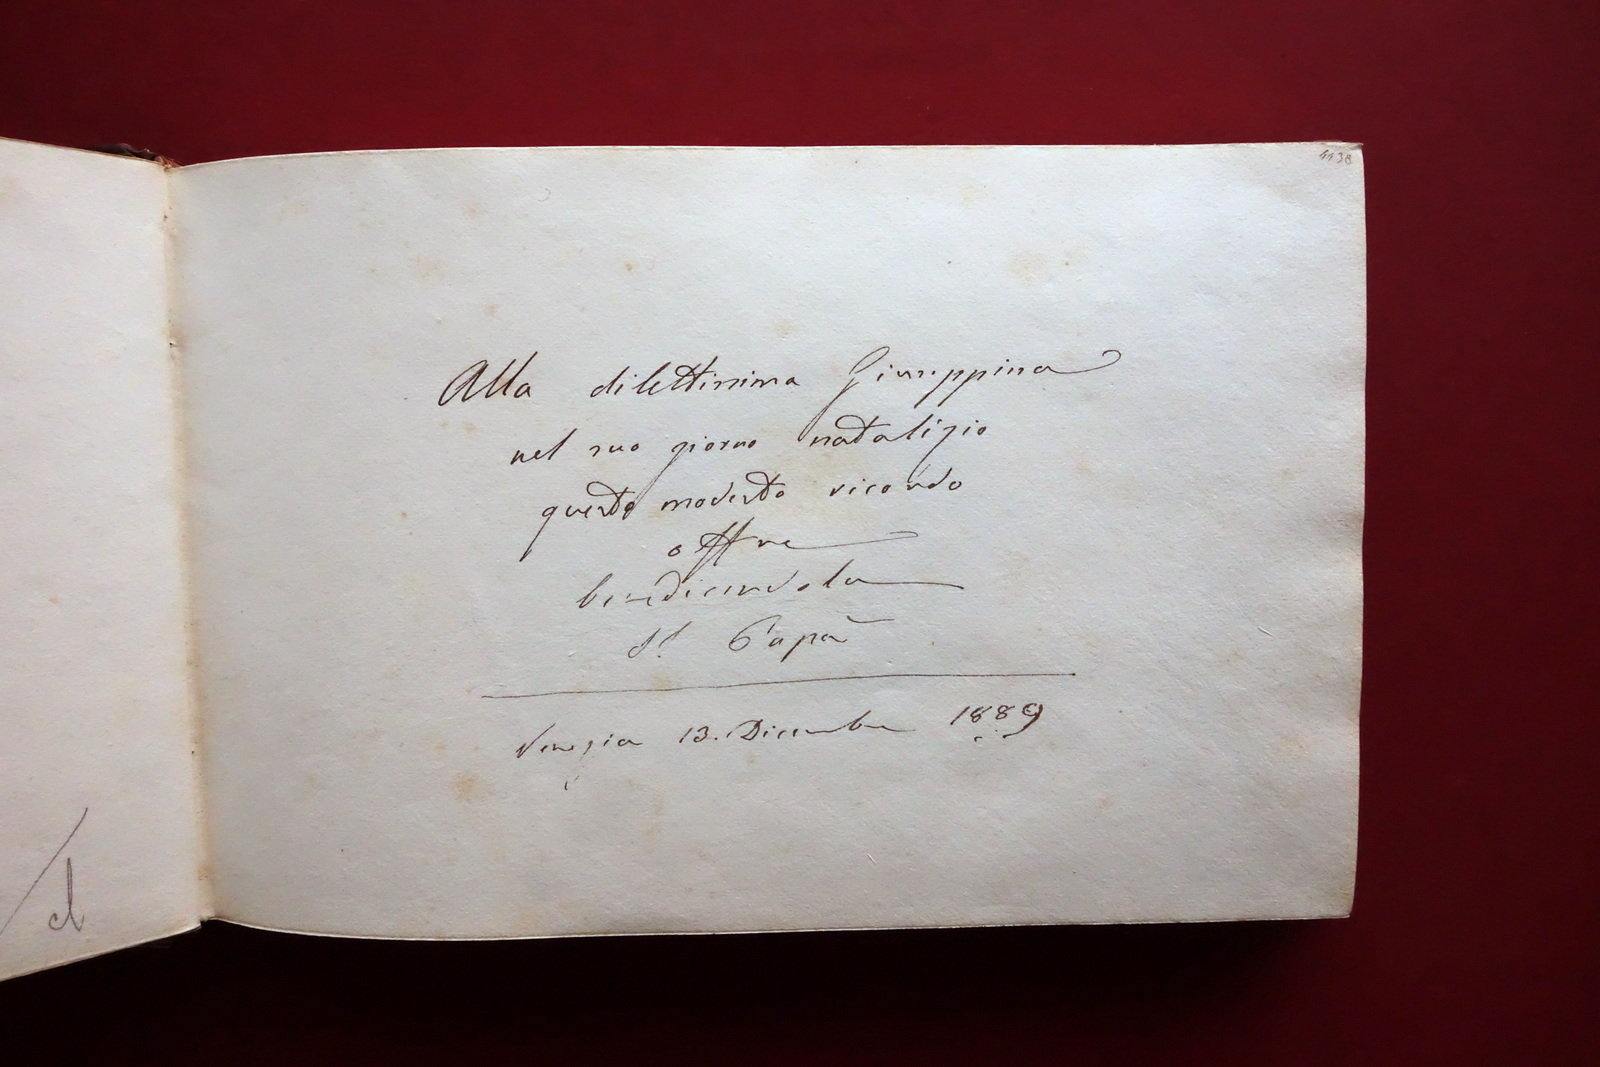 4138
Alla dilettissima Giuseppina
nel suo giorno natalizio
questo modesto ricordo
offre
benedicendola
Il Papà
Venezia 13. Dicembre 1889